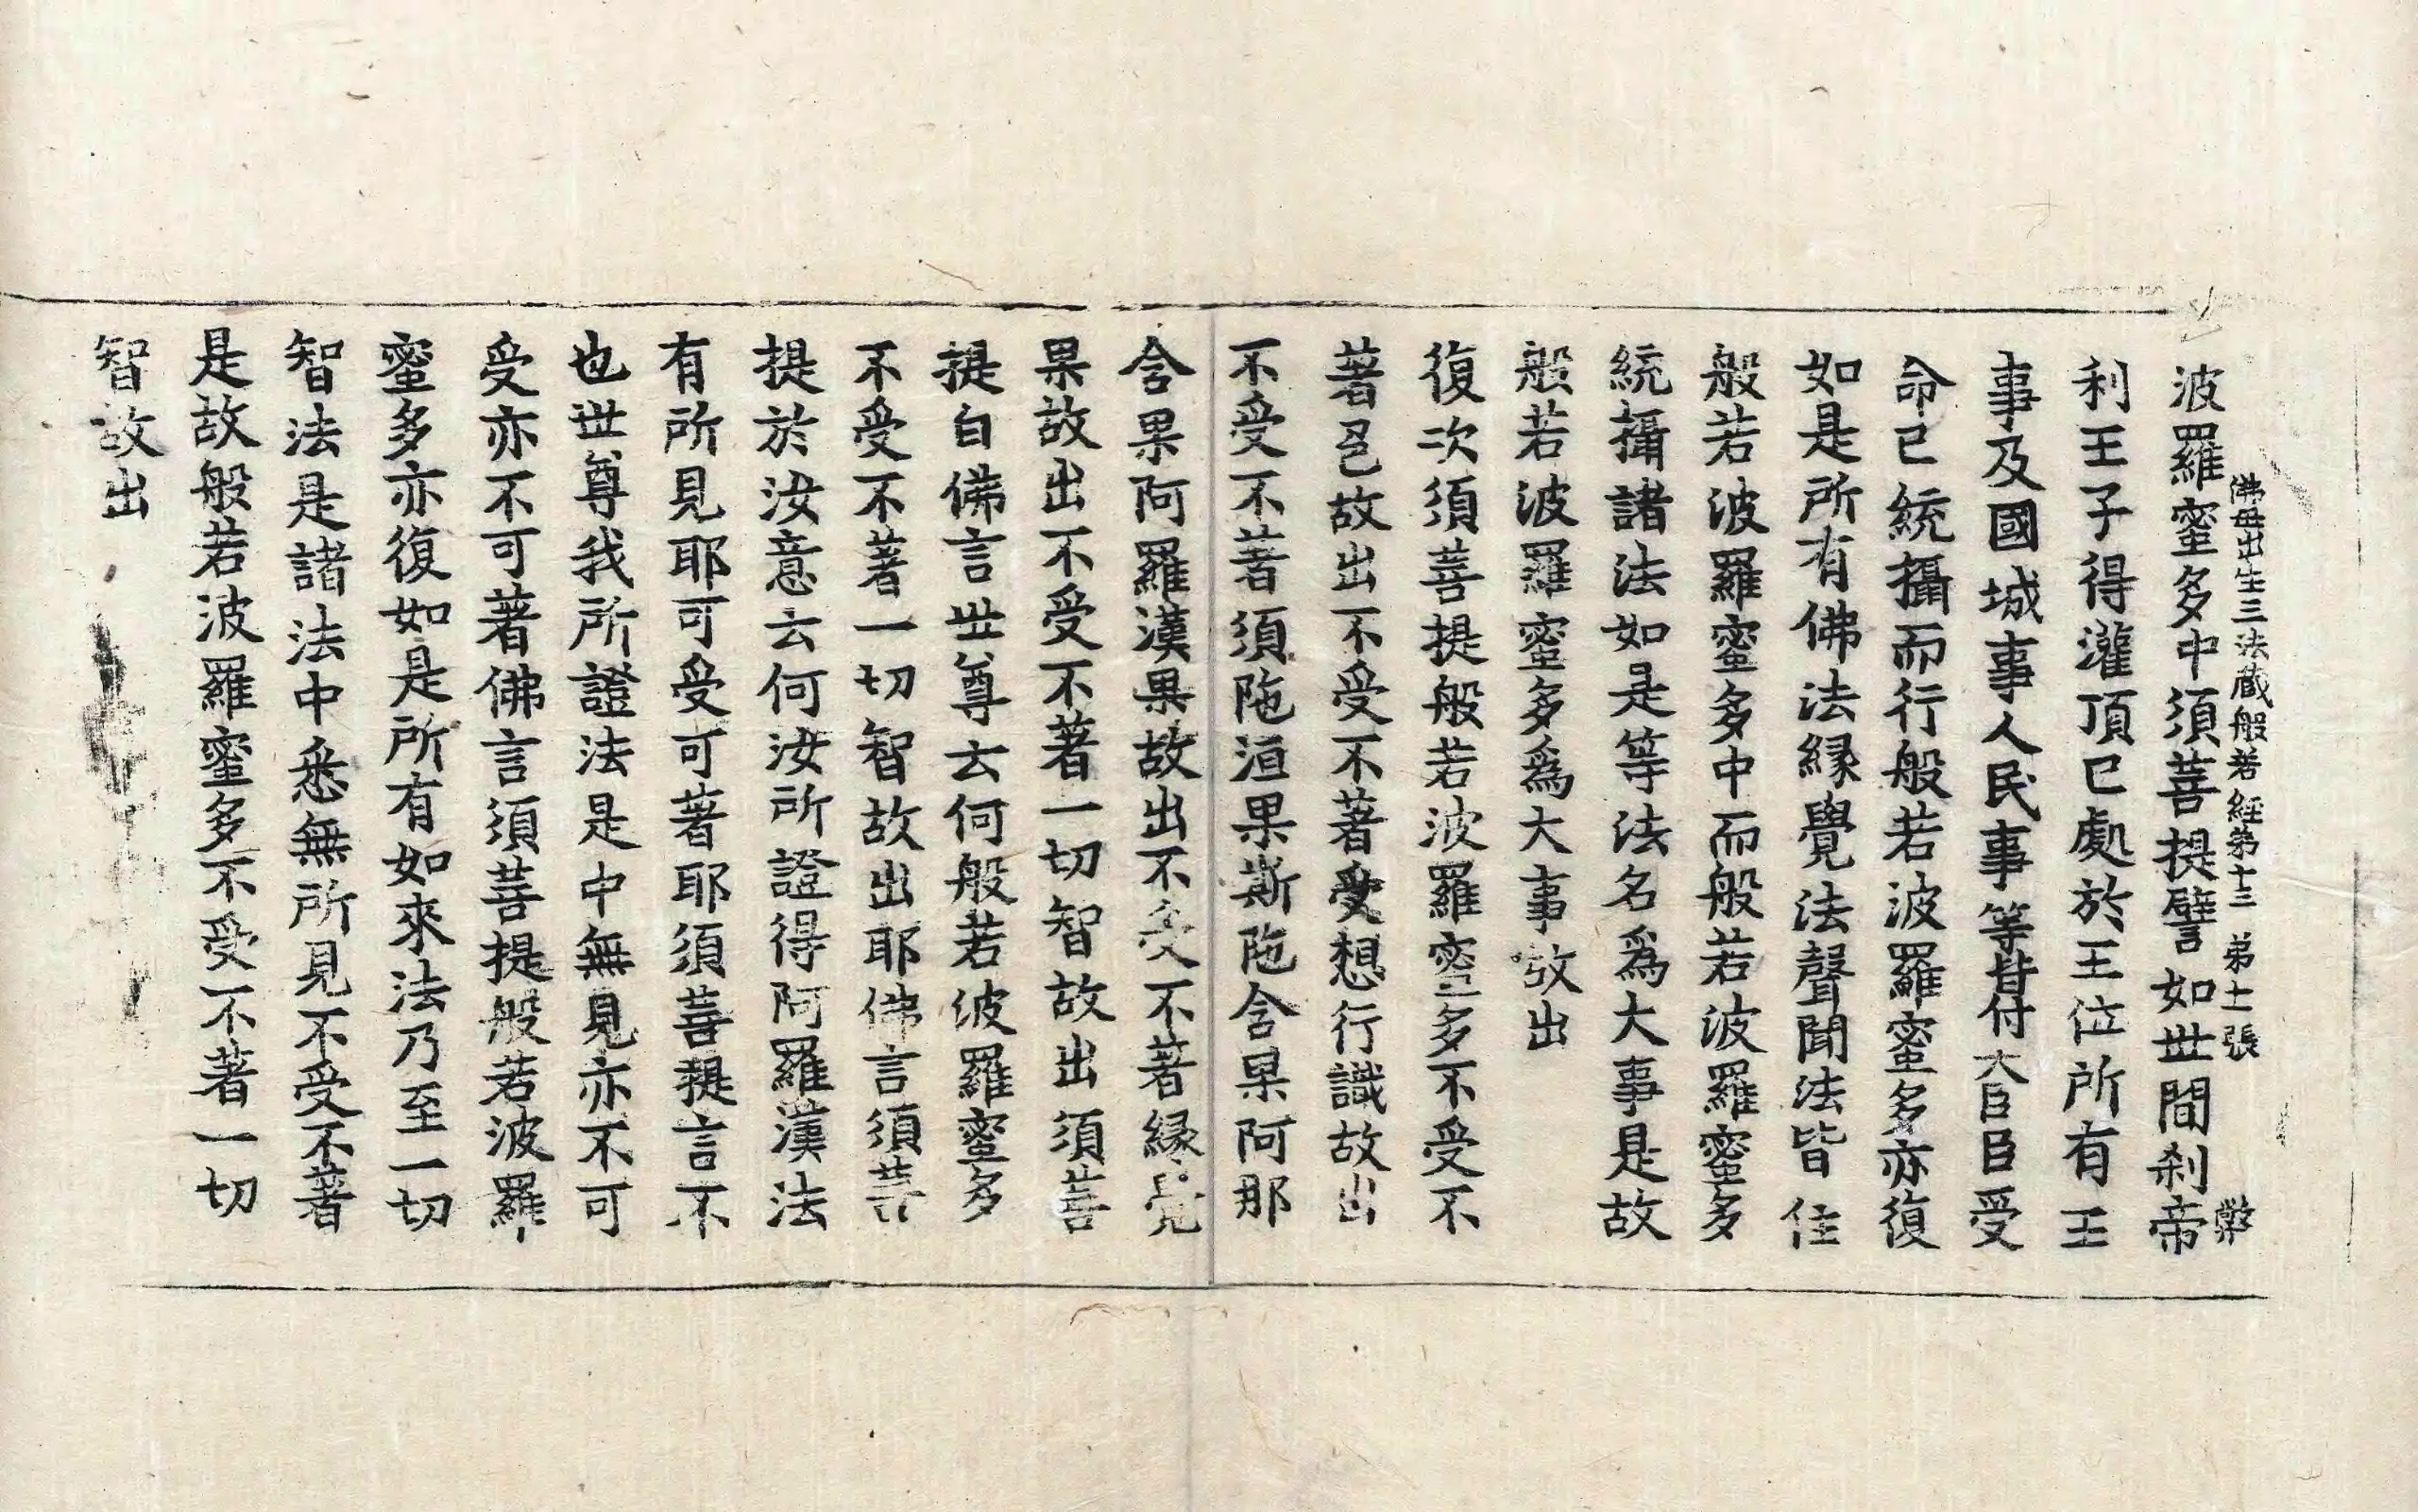 佛母出生三法藏般若經第十三 第十一張
波羅蜜多中須菩提譬如世間刹帝
利王子得灌頂已處於王位所有王
事及國城事人民事等皆付大臣臣受
命已統攝而行般若波羅蜜多亦復
如是所有佛法緣覺法聲聞法皆住
般若波羅蜜多中而般若波羅蜜多
統攝諸法如是等法名爲大事是故
般若波羅蜜多爲大事故出
復次須菩提般若波羅蜜多不受不
著色故出不受不著受想行識故出
不受不著須陁洹果斯陁含果阿那
含果阿羅漢果故出不受不著緣覺
果故出不受不著一切智故出須菩
提白佛言世尊云何般若波羅蜜多
不受不著一切智故出耶佛言須菩
提於汝意云何汝所證得阿羅漢法
有所見耶可受可著耶須菩提言不
也世尊我所證法是中無見亦不可
受亦不可著佛言須菩提般若波羅
蜜多亦復如是所有如來法乃至一切
智法是諸法中悉無所見不受不著
是故般若波羅蜜多不受不著一切
智故出